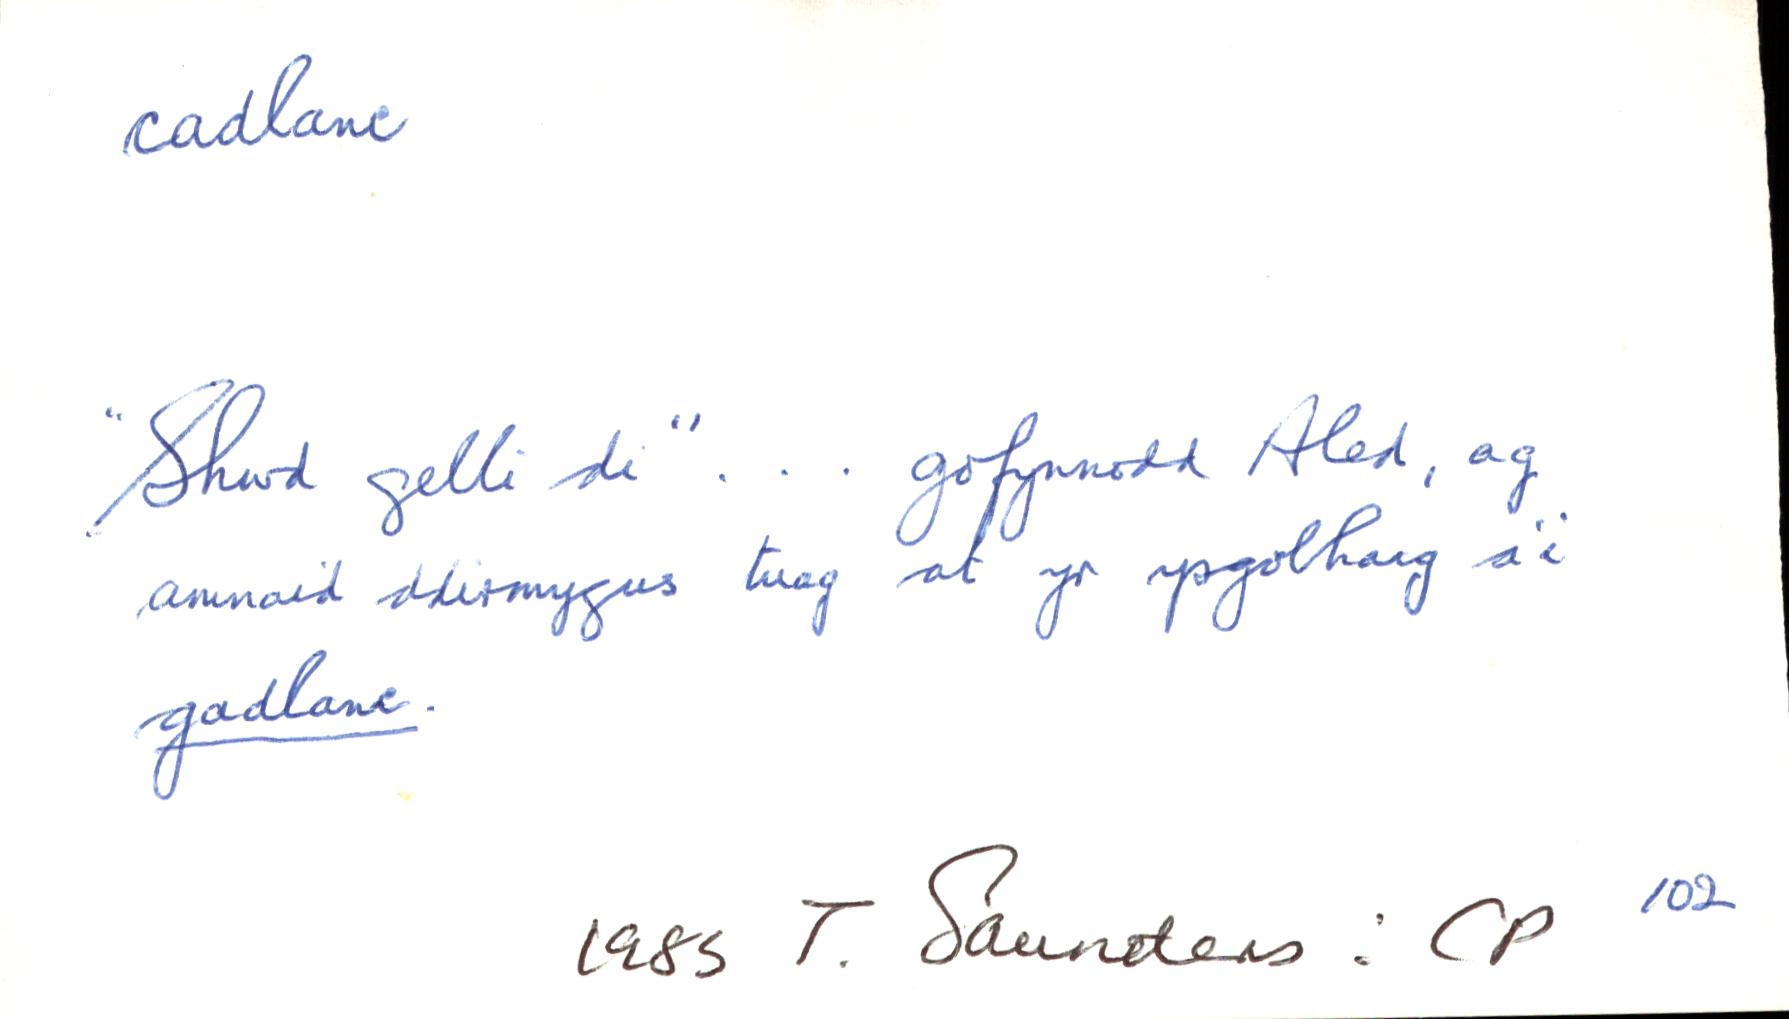 cadlanc
"Shwd gelli di" . . . gofynnodd Aled, ag
amnaid ddirmygus tuag at yr ysgolhaig a'i
gadlanc.
1985 T. Saunders : CP 102